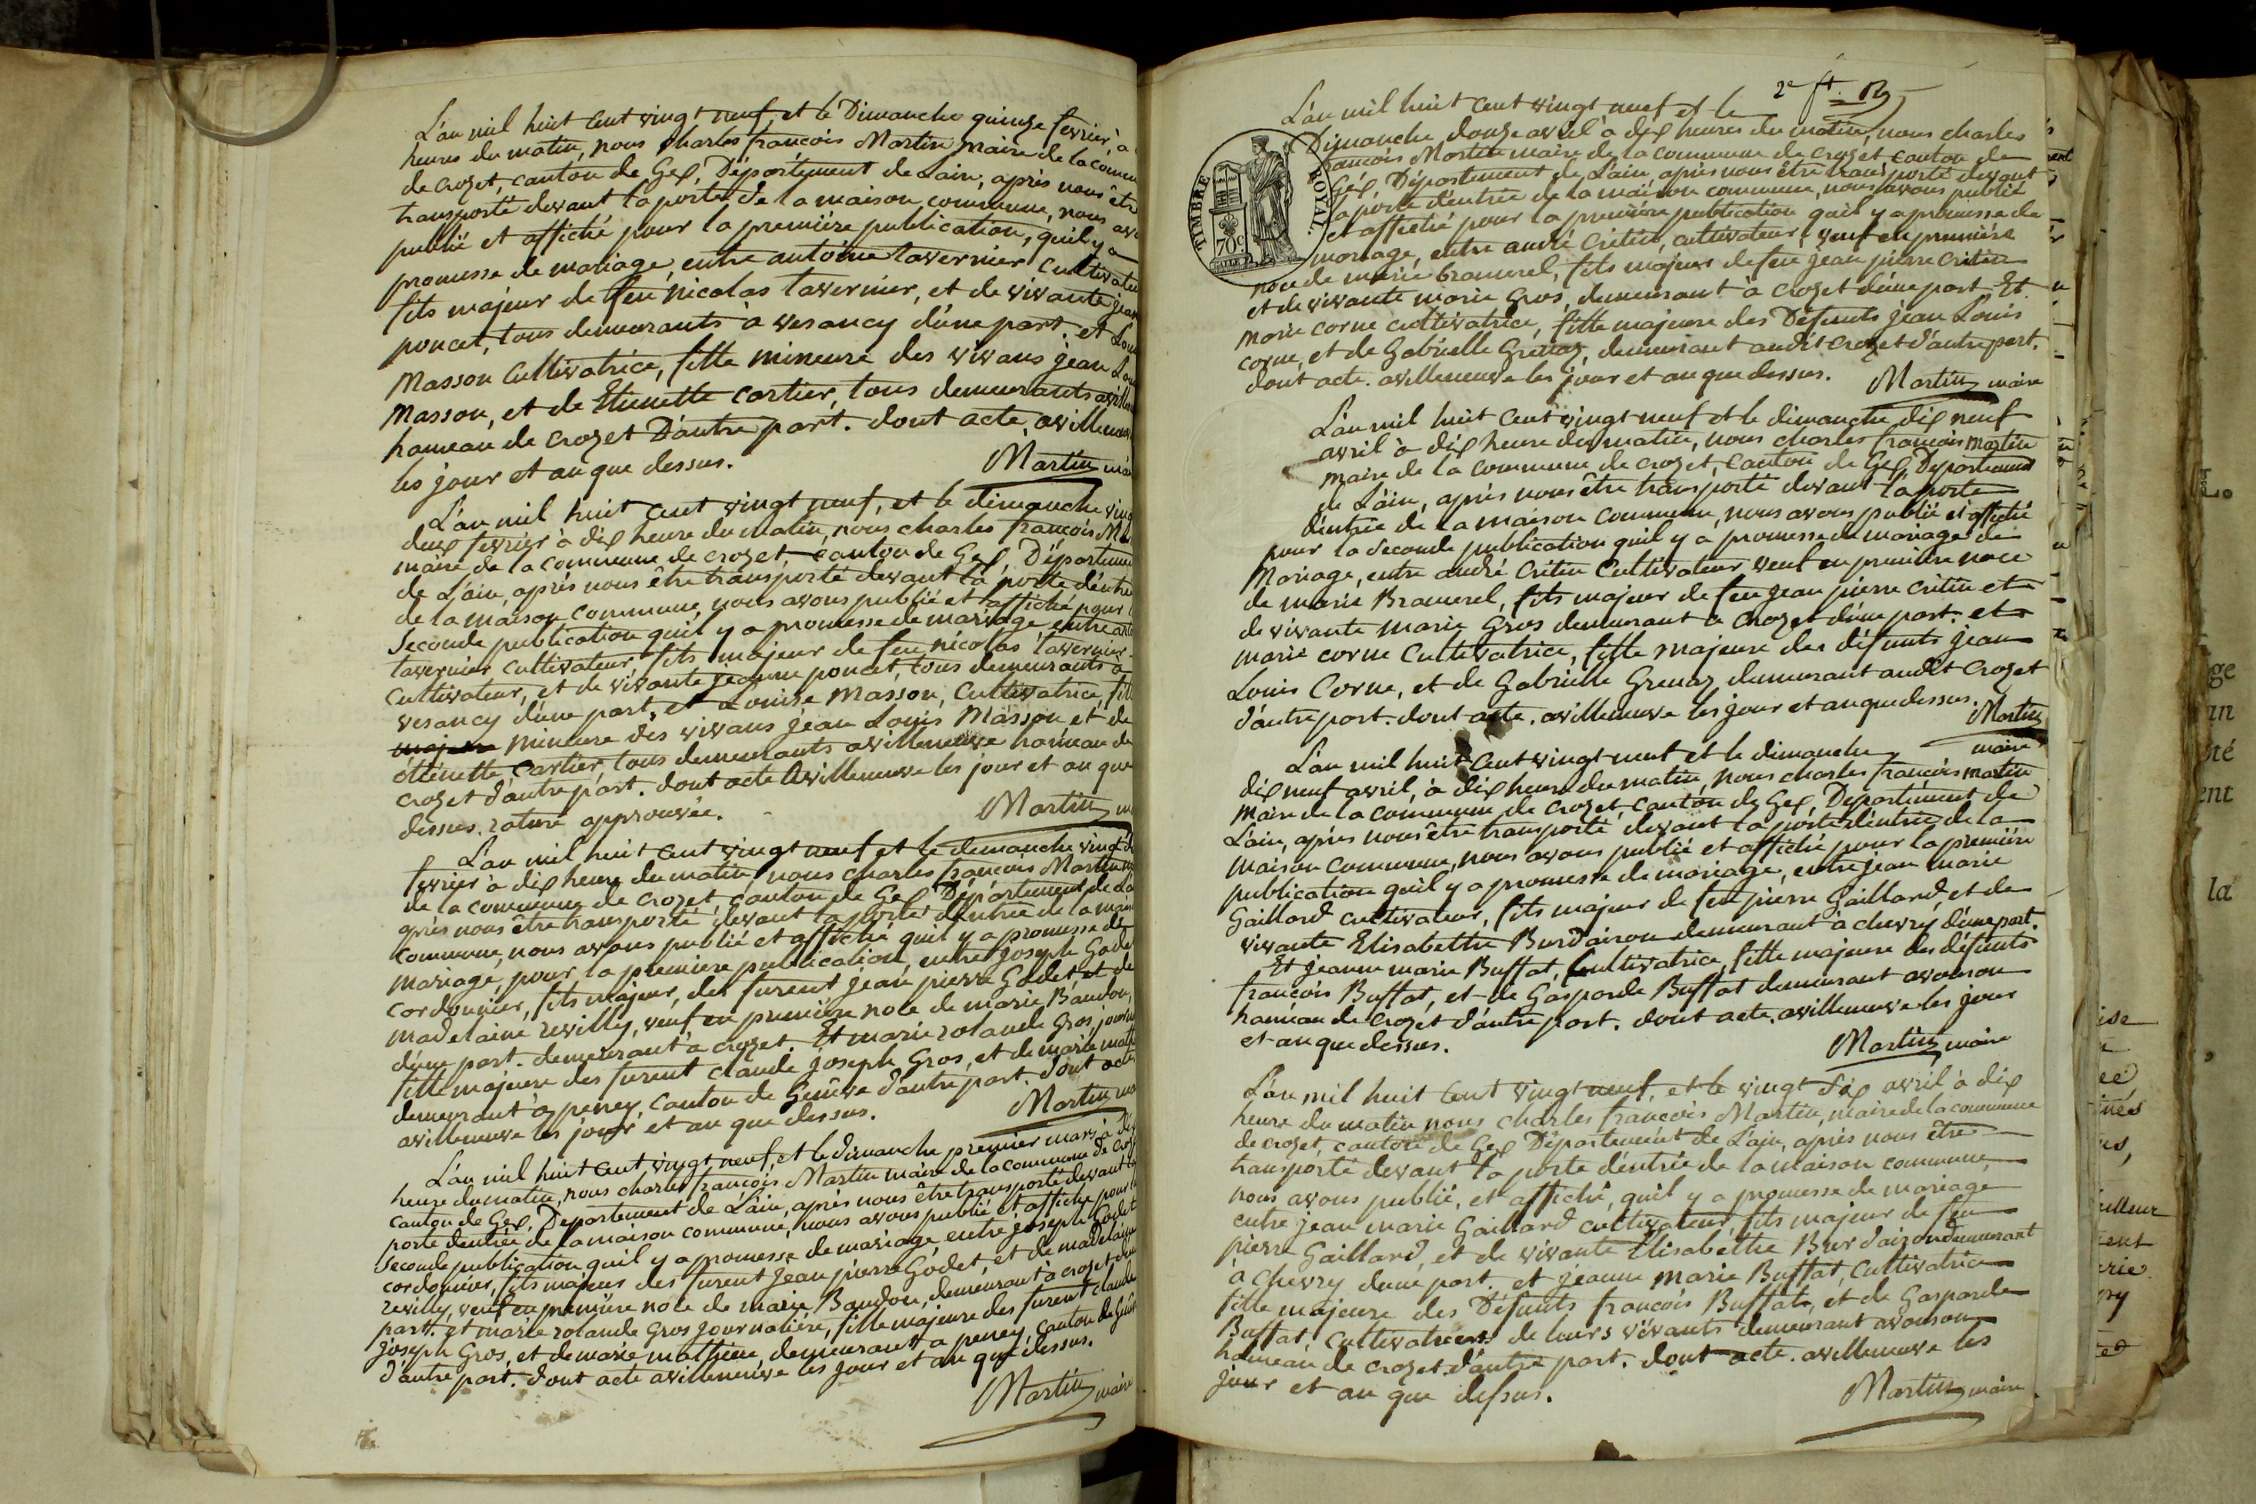 L'an mil huit cent vingt neuf, et le Dimanche quinze fevrier, à
heures du matin, nous Charles françois Martin maire de la comm
de crozet, canton de Gex, Département de Lain, après nous être
transporté devant la porte de la maison commune, nous avo
publié et affiché pour la première publication, qu'il y a
promesse de mariage, entre antoine tavernier cultivateu
fils majeur de feu nicolas tavernier, et de vivante jean
poncet, tous demeurants à vesancy d'une part. et Lou
Masson Cultivatrice, fille mineure des vivans jean Lou
Masson, et de Etienette cartier, tous demeurants avill
hameau de crozet D'autre part. dont acte, avilleneuv
les jour et an que dessus.
Martin mai
L'an mil huit cent vingt neuf, et le dimanche vingt
deux fevrier à dix heure du matin, nous charles françois M
maire de la commune de crozet, canton de Gex, Départeme
de L'ain, après nous être transporté devant la porte d'entré
de la maison commune, nous avons publié et affiché pour l
Seconde publication qu'il y a promesse de mariage entre ant
tavernier cultivateur, fils majeur de feu nicolas tavernier
Cultivateur, et de vivante jeanne poncet, tous demeurants à
vesancy d'une part, et Louise Masson, Cultivatrice, fill
majeure mineure des vivans jean Louis Masson et de
étiénette cartier, tous demeurants avilleneuve hameau de
crozet d'autre part. dont acte Avilleneuve les jour et an que
dessus. rature approuvée.
Martin m
L'an mil huit cent vingt neuf et le dimanche vingt d
fevrier à dix heure du matin, nous charles françois Martin m
de la commune de crozet, canton de Gex Département de La
après nous être transporté devant la porte d'entrée de la mais
commune, nous avons publié et affiché qu'il y a promesse de
mariage, pour la première publication, entre joseph Godet
cordonnier, fils majeur, des furent jean pierre Godet, et de
madelaine revilly, veuf en première noce de marie Baudon,
d'une part. demeurant à crozet. Et marie rolande Gros, journ
fille majeure des furent claude joseph Gros, et de marie math
demeurant à peney, canton de Genève d'autre part. dont acte
avilleneuve les jour et an que dessus.
Martin ma
L'an mil huit cent vingt neuf, et le dimanche premier mars à dix
heure du matin, nous charles françois Martin maire de la commune de croz
canton de Gex, Département de L'ain, après nous être transporté devant la
porte d'entrée de la maison commune, nous avons publié et affiché pour l
Seconde publication qu'il y a promesse de mariage entre joseph Godet
cordonnier, fils majeur des furent jean pierre Godet, et de madelaine
revilly, veuf en première noce de marie Baudon, demeurant à crozet d'une
part. et marie rolande Gros journalière, fille majeure des furent claude
joseph Gros, et de marie mathieu, demeurant a peney, canton de Genè
d'autre part. dont acte avilleneuve les jour et an que dessus.
Martin maire
2e ft.
L'an mil huit cent vingt neuf et le
Dimanche douze avril à dix heures du matin, nous charles
françois Martin maire de la commune de crozet canton de
Gex, Département de L'ain, après nous être transporté devant
la porte d'entrée de la maison commune, nous avons publié
et affiché pour la première publication qu'il y a promesse de
mariage, entre andré Critin, cultivateur, veuf en première
noce de marie bramerel, fils majeur de feu jean pierre Critin
et de vivante marie Gros, demeurant à crozet d'une part. Et
Marie corne cultivatrice, fille majeure des Défunts jean Louis
corne, et de Gabrielle Grénaz, demeurant audit crozet d'autre part.
dont acte. avilleneuve les jour et an que dessus.
Martin maire
TIMBRE ROYAL.
70c
L'an mil huit cent vingt neuf et le dimanche dix neuf
avril à dix heure du matin, nous charles françois martin
maire de la commune de crozet, canton de Gex, Département
de L'ain, après nous être transporté devant la porte
d'entrée de la maison commune, nous avons publié et affiché
pour la Seconde publication qu'il y a promesse de mariage de
Mariage, entre andré Critin Cultivateur veuf en première noce
de marie Bramerel, fils majeur de feu jean pierre critin et
de vivante marie Gros demeurant à Crozet d'une part. et
marie corne Cultivatrice, fille majeure des défunts jean
Louis Corne, et de Gabrielle Grenaz demeurant audit Crozet
d'autre part. dont acte. avilleneuve les jour et an que dessus.
Martin
maire
L'an mil huit cent vingt neuf et le dimanche
dix neuf avril, à dix heure du matin, nous charles françois martin
maire de la commune de crozet, canton de Gex, Département de
L'ain, après nous être transporté devant la porte d'entrée de la
maison commune, nous avons publié et affiché pour la première
publication qu'il y a promesse de mariage, entre jean marie
Gaillard cultivateur, fils majeur de feu pierre Gaillard, et de
vivante Elisabethe Burdairon demeurant à chevry d'une part.
Et jeanne marie Buffat, Cultivatrice, fille majeure des défunts
françois Buffat, et de Gasparde Buffat demeurant avoason
hameau de Crozet d'autre part. dont acte. avilleneuve les jour
et an que dessus.
Martin maire
L'an mil huit cent vingt neuf, et le vingt six avril à dix
heure du matin nous charles françois Martin, maire de la commune
de crozet, canton de Gex Département de L'ain, après nous être
transporté devant la porte d'entrée de la maison commune,
nous avons publié, et affiché, qu'il y a promesse de mariage
entre jean marie Gaillard cultivateur, fils majeur de feu
pierre Gaillard, et de vivante Elisabéthe Burdairon demeurant
à Chevry d'une part. et jeanne marie Buffat, Cultivatrice
fille majeure des Défunts françois Buffat, et de Gasparde
Buffat, Cultivateurs de leurs vivants demeurant avouson
hameau de crozet d'autre part. dont acte. avilleneuve les
jour et an que dessus.
Martin maire